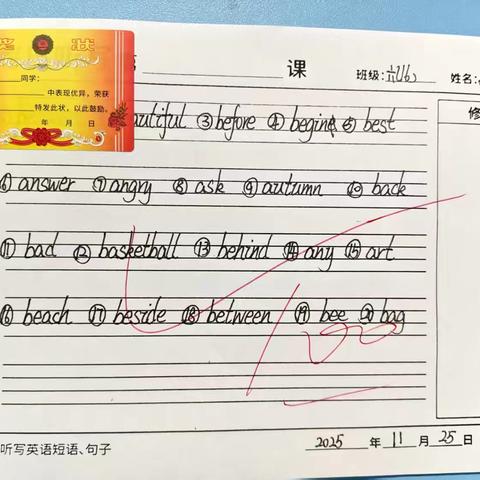 奖 状
同学:
中表现优异，荣获
特发此状，以此鼓励。
年 月 日
课 班级:六(6) 姓名:
修
autiful ③ before ④ begin ⑤ best
⑥ answer ⑦ angry ⑧ ask ⑨ autumn ⑩ back
⑪ bad ⑫ basketball ⑬ behind ⑭ any ⑮ art
⑯ beach ⑰ beside ⑱ between ⑲ bee ⑳ bag
100
听写英语短语、句子
2025 年 11 月 25 日